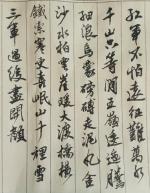 紅軍不怕遠征難萬水
千山只等閒五嶺逶迤騰
細浪烏蒙磅礴走泥丸金
沙水拍雲崖暖大渡橋橫
鐵索寒更喜岷山千里雪
三軍過後盡開顏